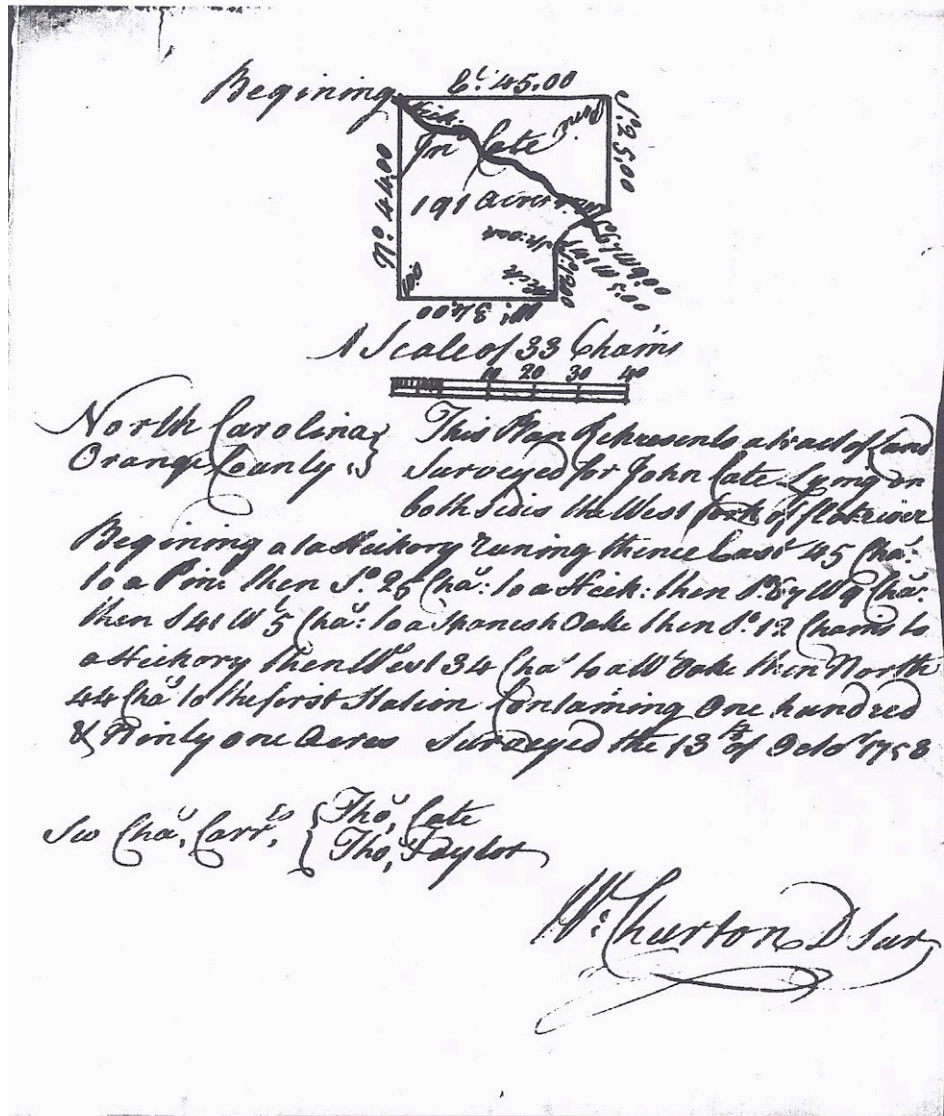 Begining
E.t 45.00
So. 25.00
Hick.
Pine
Jn Cate
191 Acres
No. 44.00
W: 34.00
A Scale of 33 Chains
10 20 30 40
North Carolina }
Orange County . }
This Plan Represents a tract of Land
Surveyed for John Cate Lying on
both sides the West fork of flat river
Begining at a Hickory Runing thence East 45 Cha:
to a Pine then So. 25 Cha: to a Hick: then So. 67 W 9 Cha:
then S 41 W 5 Cha: to a Spanesh Oake then So. 12 Chains to
a Hickory then West 34 Cha: to a W Oake then North
44 Cha: to the first Station Containing One hundred
& Ninty one Acres Surveyed the 13th of Octor 1758
Sw Cha. Carrs. { Tho. Cate
Tho. Taylor
Wm: Churton D Sur